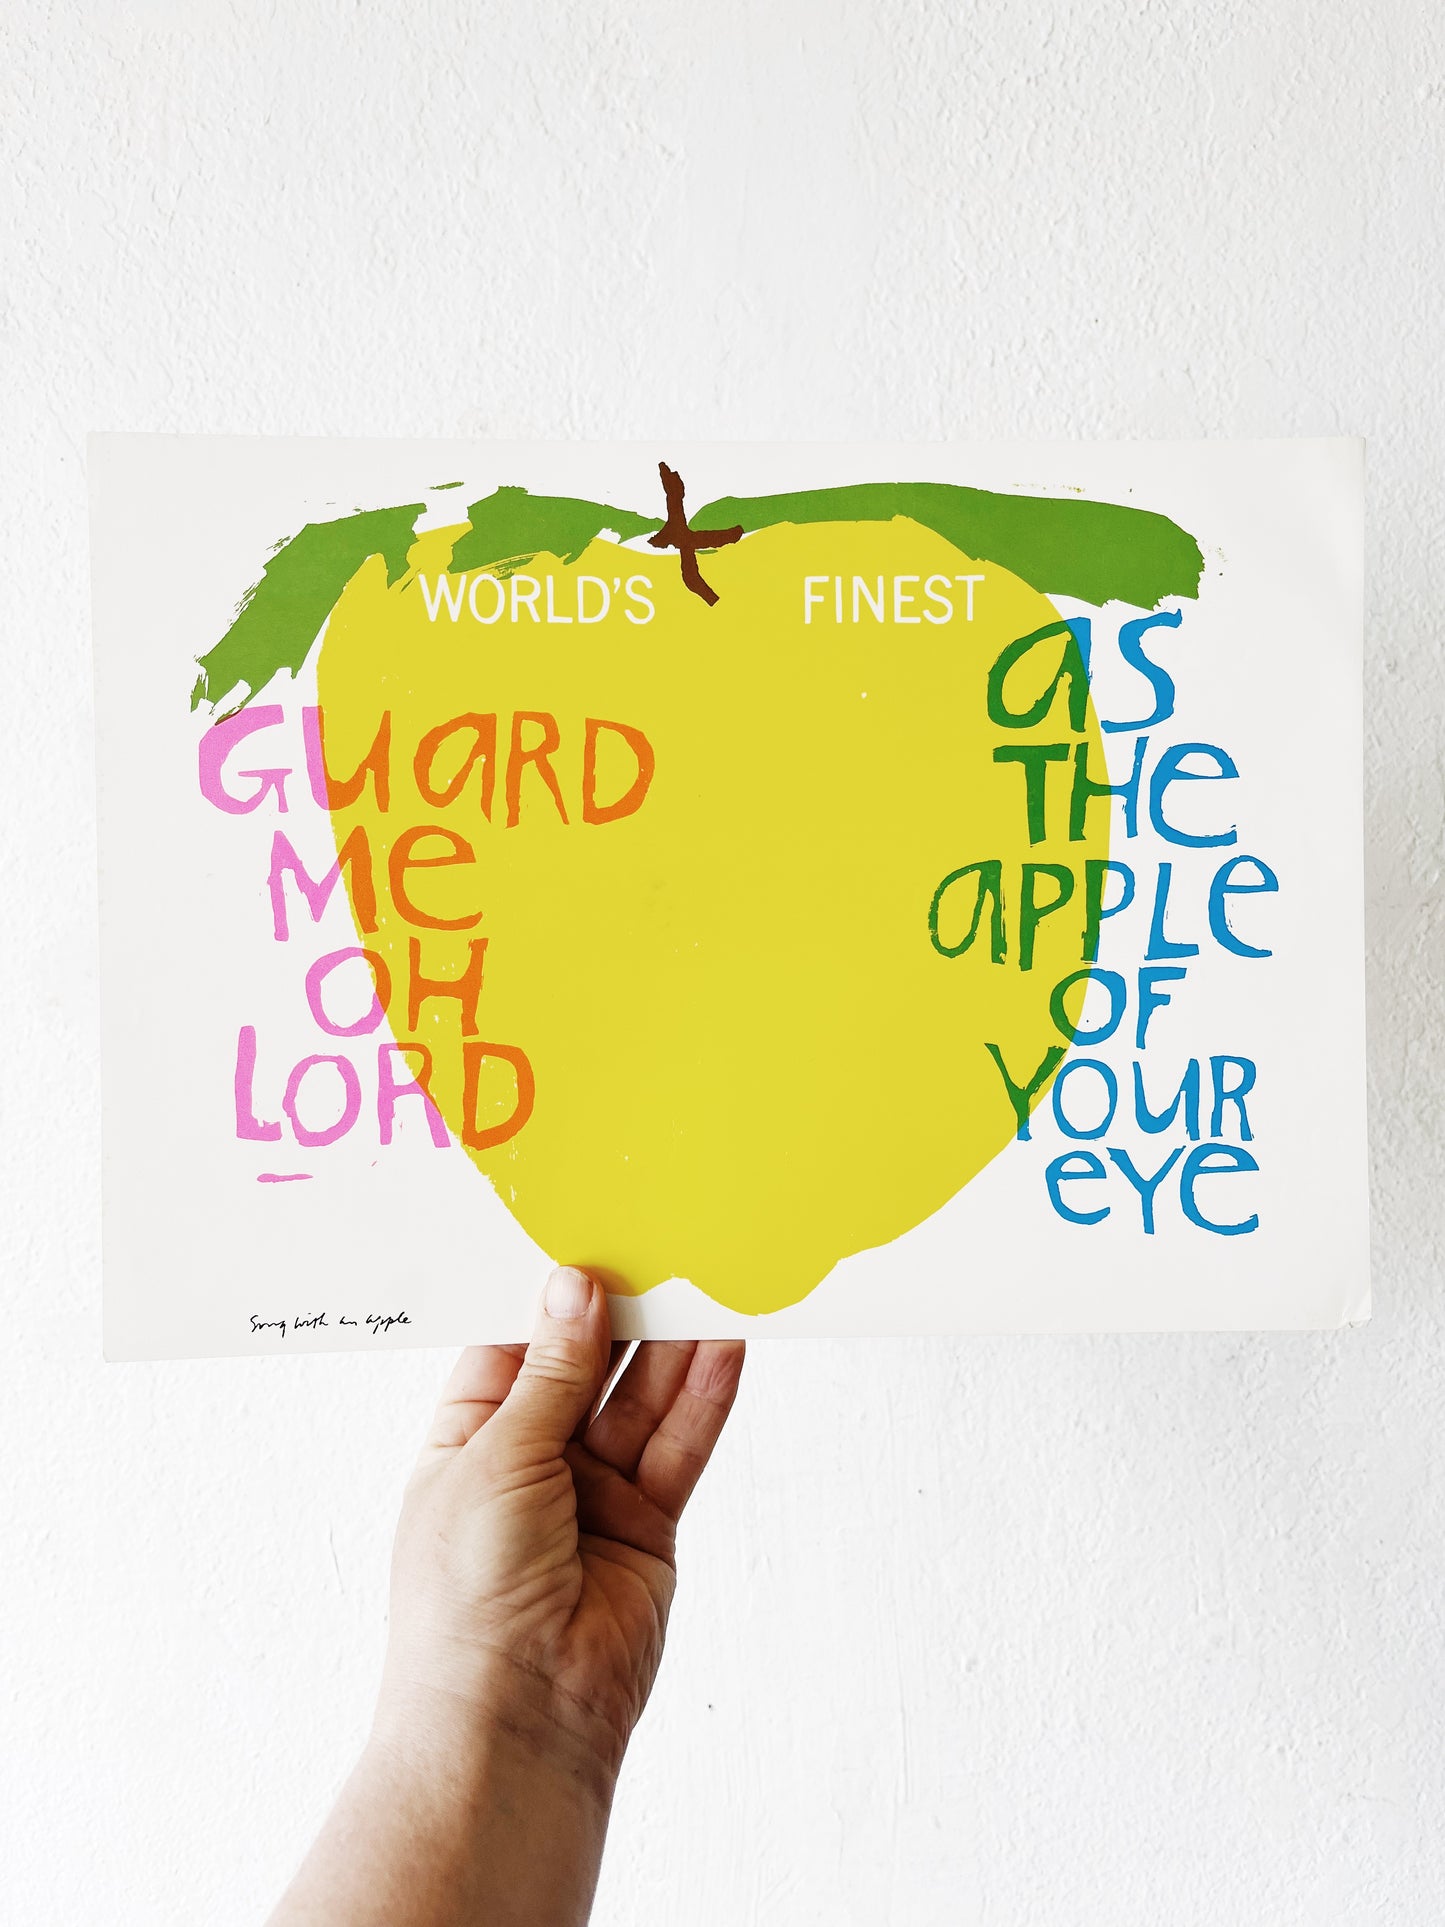 WORLD'S FINEST
GUaRD
Me
OH
LORD
as
THe
aPPLe
OF
YOUR
eYe
Song with an apple